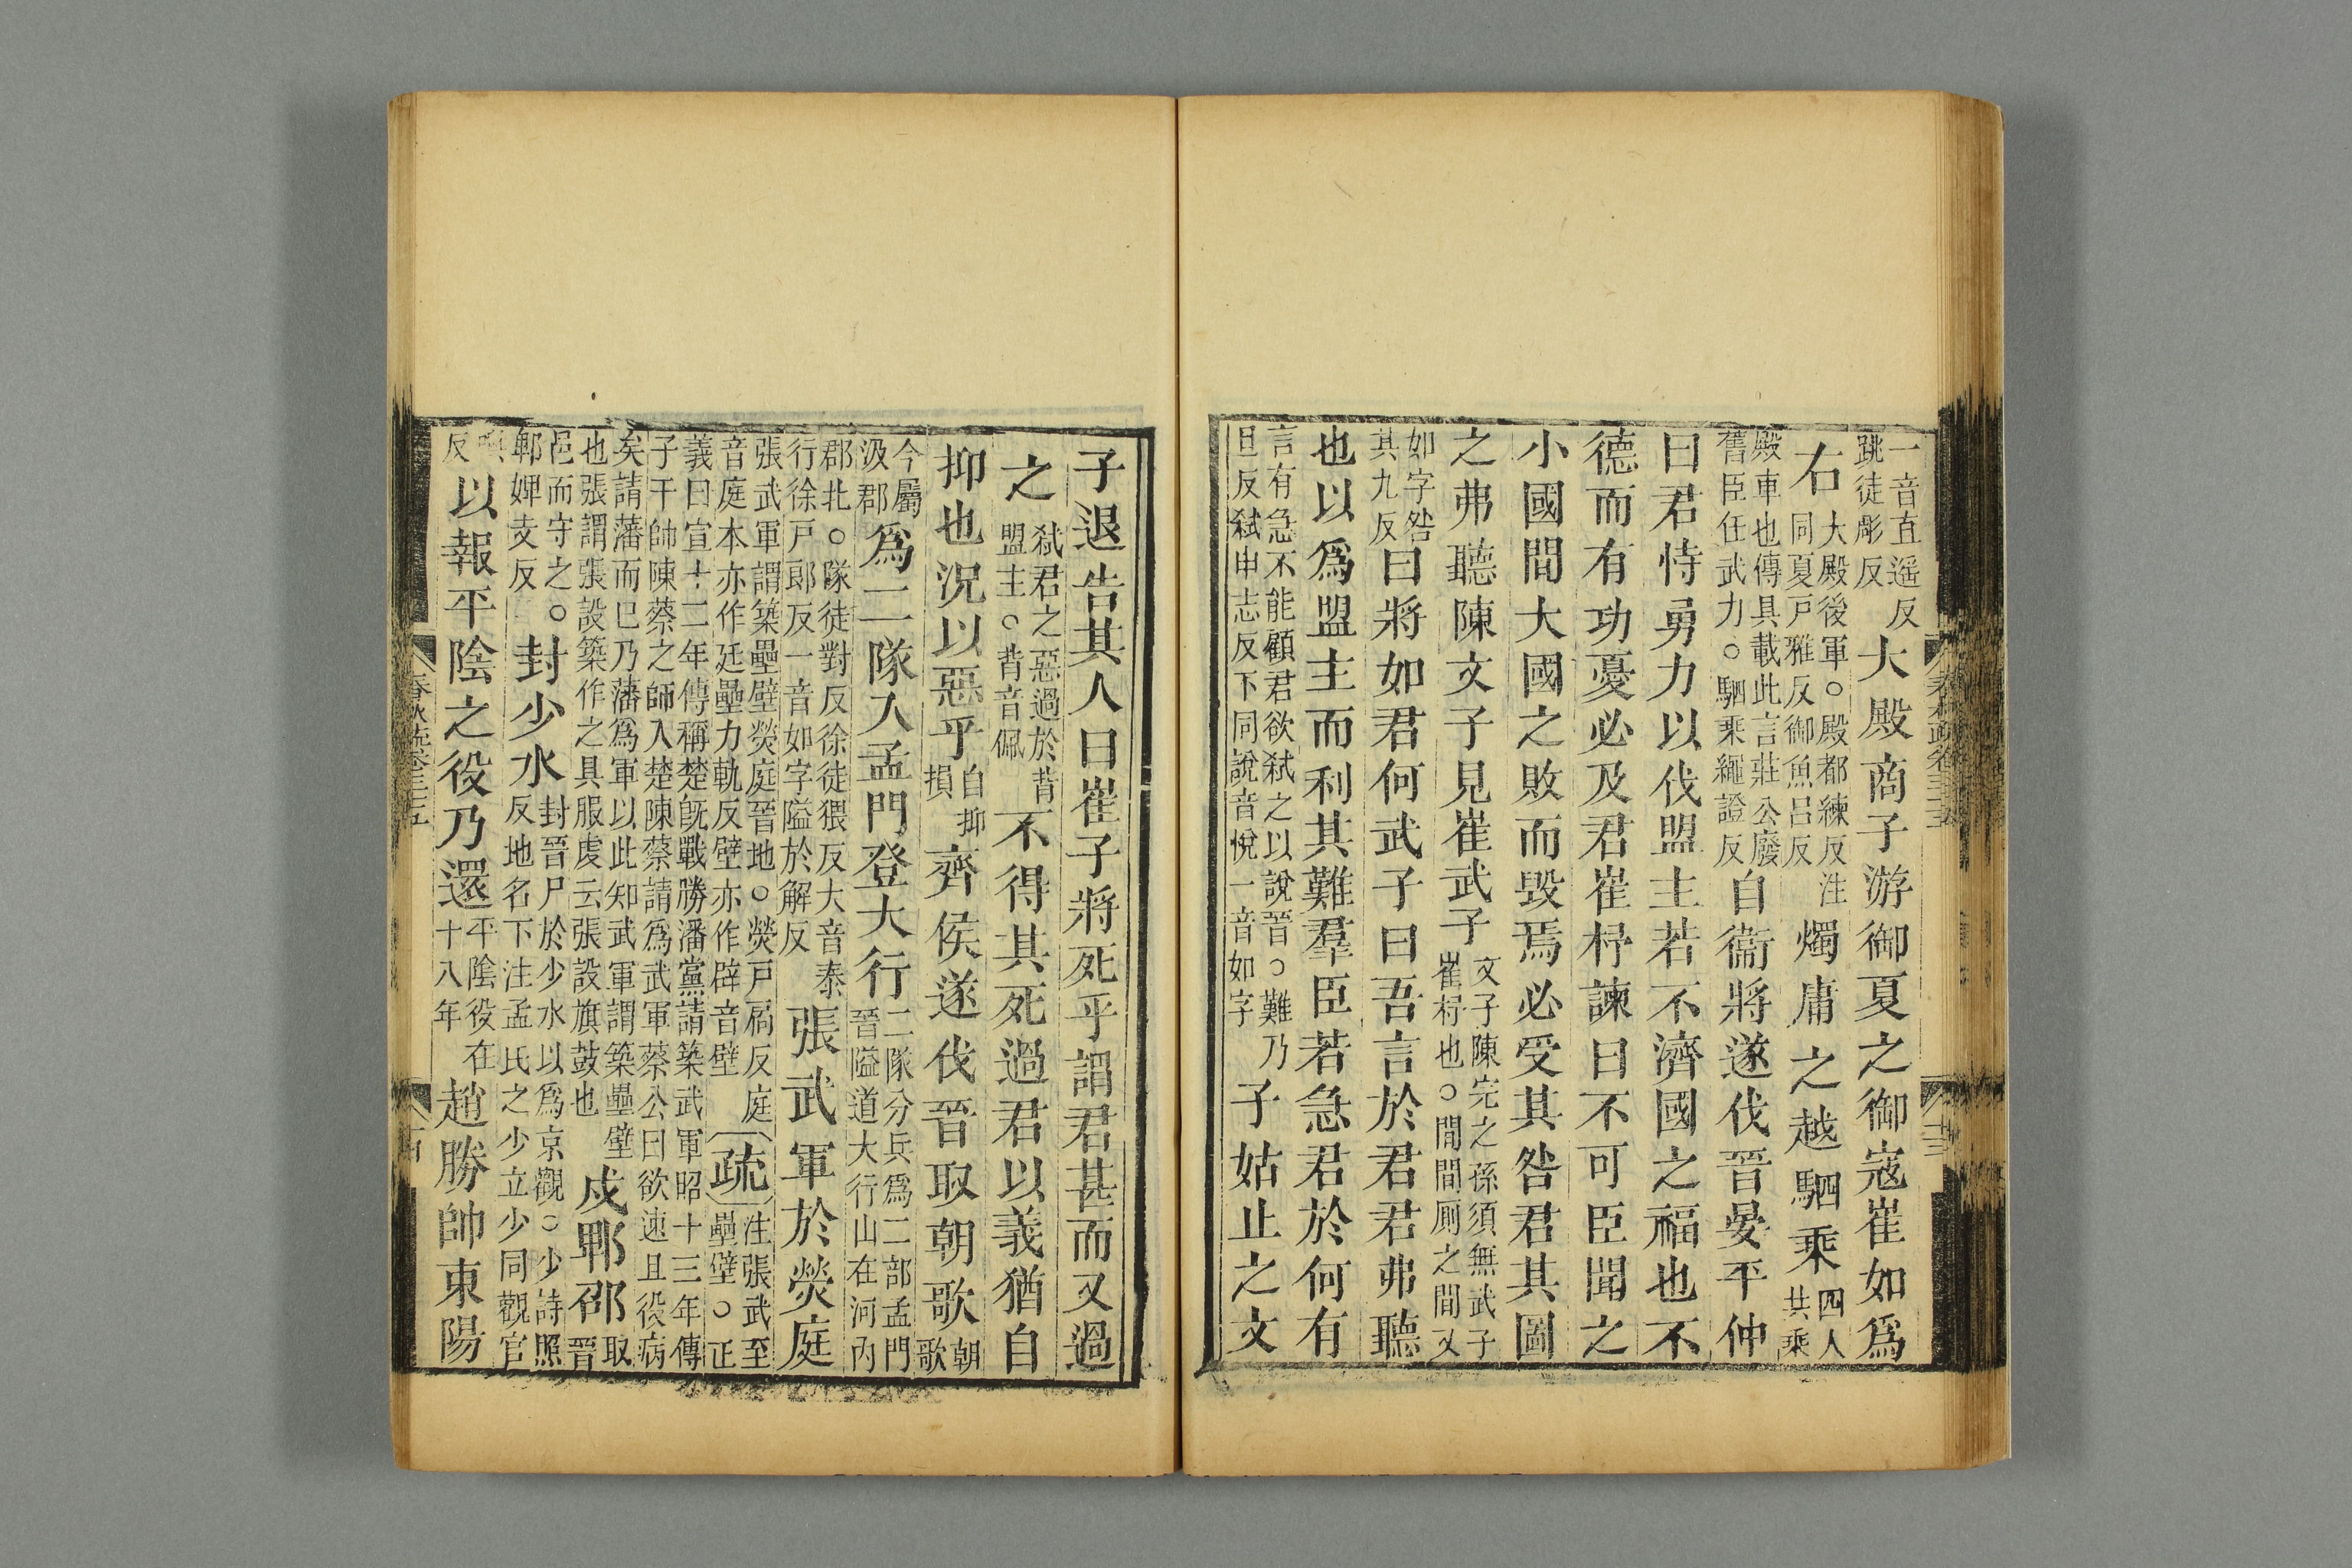 一音直遥反
跳徒彫反
大殿商子游御夏之御寇崔如爲
右
大殿後軍○殿都練反注
同夏戸雅反御魚呂反
燭庸之越駟乘
四人
共乘
殿車也傳具載此言莊公廢
舊臣任武力○駟乘繩證反
自衞將遂伐晉晏平仲
曰君恃勇力以伐盟主若不濟國之福也不
德而有功憂必及君崔杼諫曰不可臣聞之
小國間大國之敗而毁焉必受其咎君其圖
之弗聽陳文子見崔武子
文子陳完之孫須無武子
崔杼也○間間厠之間又
如字咎
其九反
曰將如君何武子曰吾言於君君弗聽
也以爲盟主而利其難羣臣若急君於何有
言有急不能顧君欲弑之以說晉○難乃
旦反弑申志反下同說音悅一音如字
子姑止之文
子退告其人曰崔子將死乎謂君甚而又過
之
弑君之惡過於背
盟主○背音佩
不得其死過君以義猶自
抑也況以惡乎
自抑
損
齊侯遂伐晉取朝歌
朝
歌
今屬
汲郡
爲二隊入孟門登大行
二隊分兵爲二部孟門
晉隘道大行山在河内
郡北○隊徒對反徐徒猥反大音泰
行徐戸郞反一音如字隘於解反
張武軍於熒庭
張武軍謂築壘壁熒庭晉地○熒戸扃反庭
音庭本亦作廷壘力軌反壁亦作辟音壁
疏
注張武至
壘壁○正
義曰宣十二年傳稱楚旣戰勝潘黨請築武軍昭十三年傳
子干帥陳蔡之師入楚陳蔡請爲武軍蔡公曰欲速且役病
矣請藩而已乃藩爲軍以此知武軍謂築壘壁
也張謂張設築作之具服虔云張設旗鼓也
戍郫邵
取
晉
邑而守之○
郫婢支反
封少水
封晉尸於少水以爲京觀○少詩照
反地名下注孟氏之少立少同觀官
反
以報平陰之役乃還
平陰役在
十八年
趙勝帥東陽